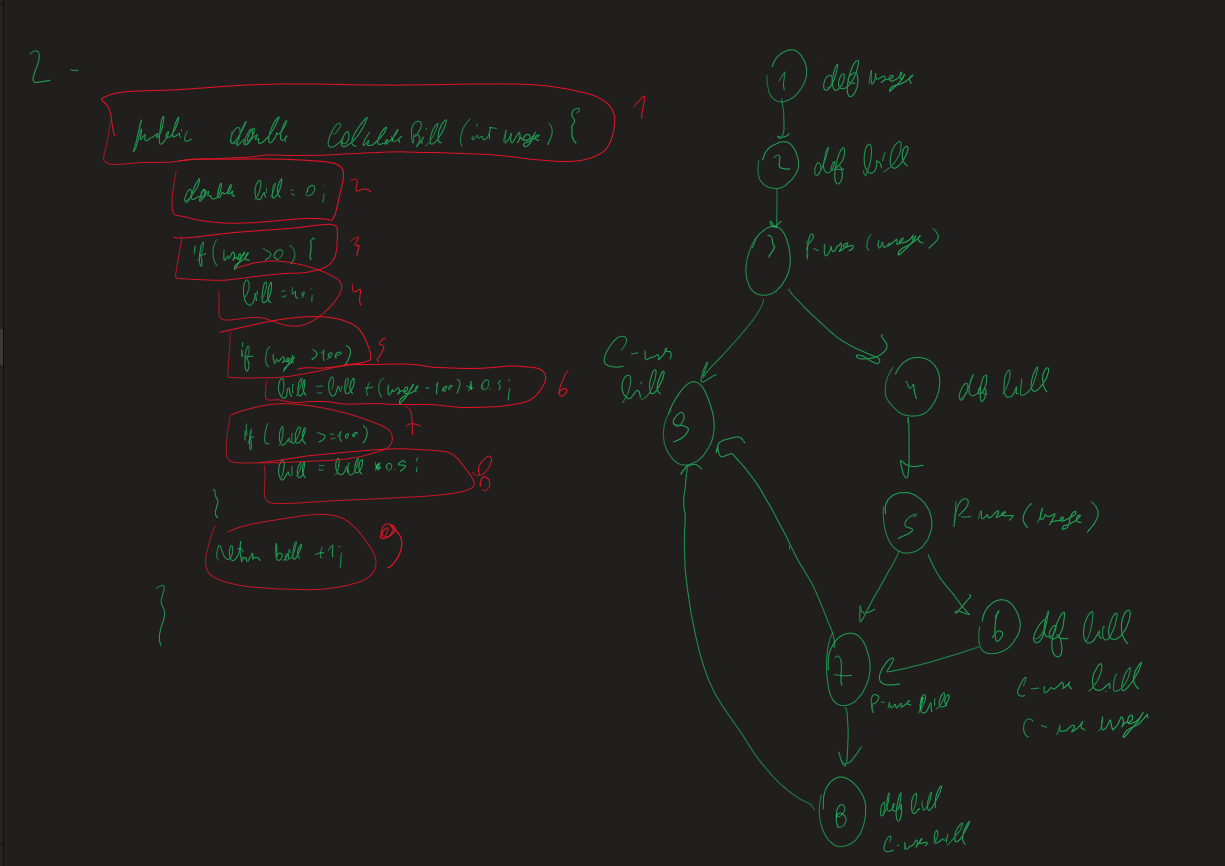 2 -
public double CalculateBill (int usage) { 1
double bill = 0; 2
if (usage >0) { 3
bill = 40; 4
if (usage >100) 5
bill = bill + (usage - 100) * 0.5; 6
if (bill >=100) 7
bill = bill * 0.5; 8
}
return bill +1; 9
}
1 def usage
2 def bill
3 P-uses (usage)
C-use
bill
9
4 def bill
5 P-uses (usage)
6 def bill
C-use bill
C-use usage
7
P-use bill
8 def bill
C-uses bill